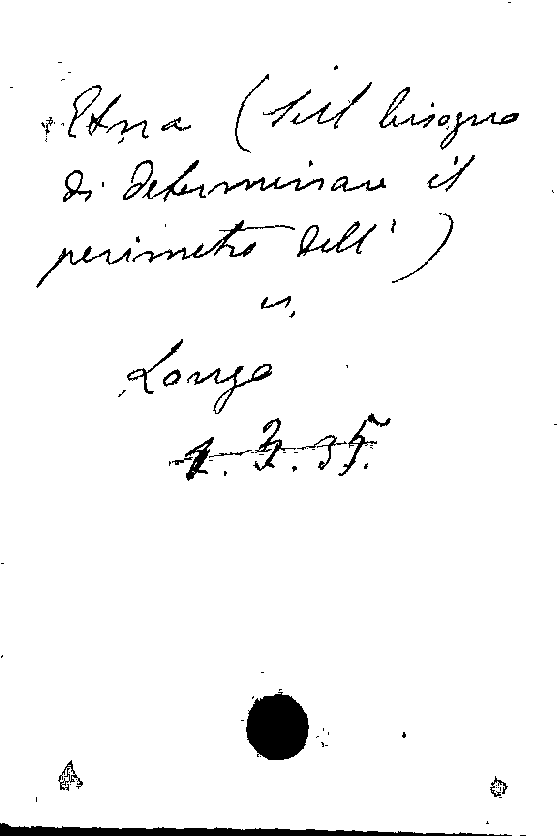 Etna (Sul bisogno
di determinare il
perimetro dell')
in
Longo
1. 3. 35.